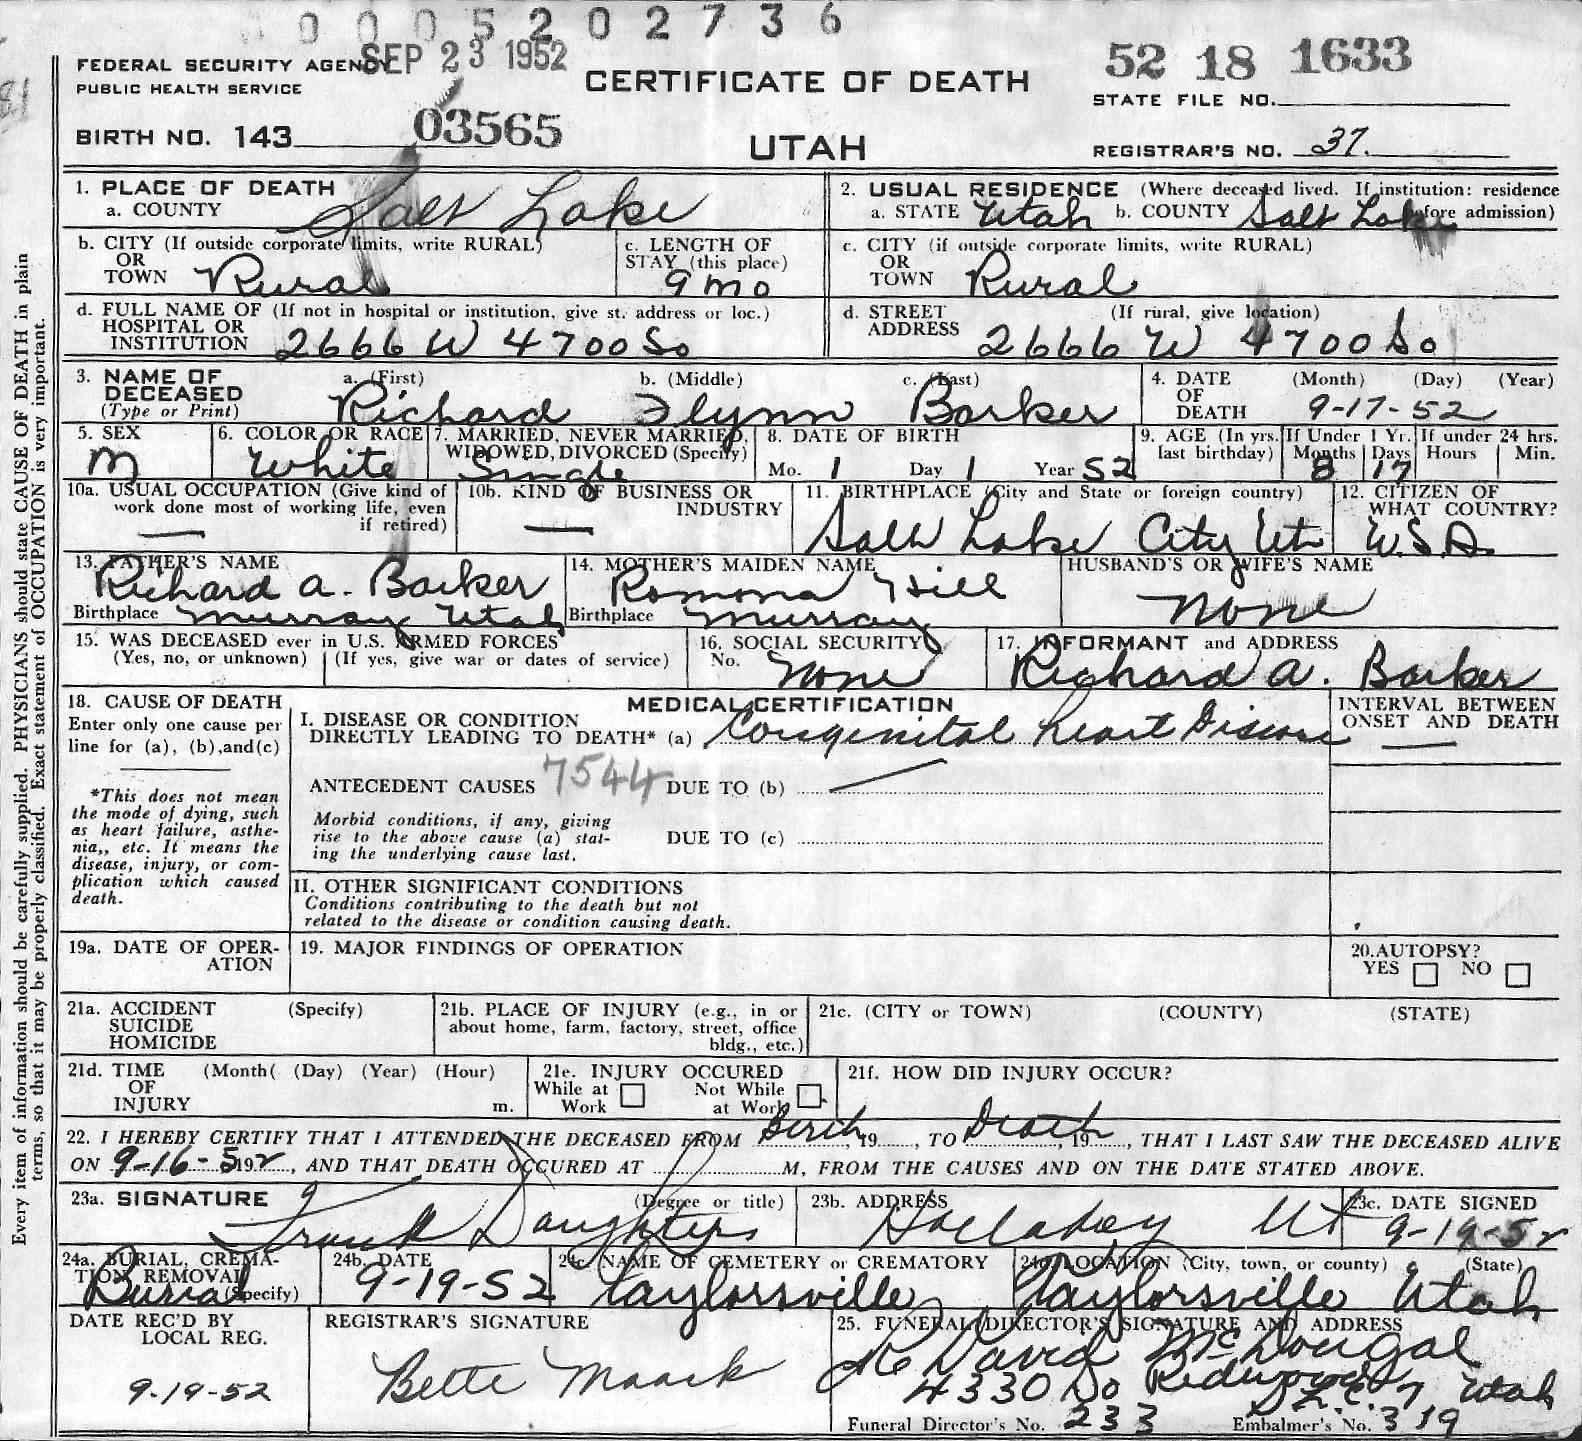 0005202736
SEP 23 1952
52 18 1633
FEDERAL SECURITY AGENCY
PUBLIC HEALTH SERVICE
CERTIFICATE OF DEATH
STATE FILE NO.
BIRTH NO. 143 03565
UTAH
REGISTRAR'S NO. 37.
Every item of information should be carefully supplied. PHYSICIANS should state CAUSE OF DEATH in plain
terms, so that it may be properly classified. Exact statement of OCCUPATION is very important.
1. PLACE OF DEATH
a. COUNTY Salt Lake
2. USUAL RESIDENCE (Where deceased lived. If institution: residence
a. STATE Utah b. COUNTY Salt Lake before admission)
b. CITY (If outside corporate limits, write RURAL)
OR
TOWN Rural
c. LENGTH OF
STAY (this place)
9 mo
c. CITY (if outside corporate limits, write RURAL)
OR
TOWN Rural
d. FULL NAME OF (If not in hospital or institution, give st. address or loc.)
HOSPITAL OR
INSTITUTION 2666 W 4700 So
d. STREET (If rural, give location)
ADDRESS 2666 W 4700 So
3. NAME OF
DECEASED
(Type or Print)
a. (First) b. (Middle) c. (Last)
Richard Flynn Barker
4. DATE (Month) (Day) (Year)
OF
DEATH 9-17-52
5. SEX
M
6. COLOR OR RACE
White
7. MARRIED, NEVER MARRIED,
WIDOWED, DIVORCED (Specify)
Single
8. DATE OF BIRTH
Mo. 1 Day 1 Year 52
9. AGE (In yrs.
last birthday)
If Under 1 Yr.
Months Days
8 17
If under 24 hrs.
Hours Min.
10a. USUAL OCCUPATION (Give kind of
work done most of working life, even
if retired)
—
10b. KIND OF BUSINESS OR
INDUSTRY
—
11. BIRTHPLACE (City and State or foreign country)
Salt Lake City Ut
12. CITIZEN OF
WHAT COUNTRY?
U.S.A.
13. FATHER'S NAME
Richard A. Barker
Birthplace Murray Utah
14. MOTHER'S MAIDEN NAME
Romona Hill
Birthplace Murray
HUSBAND'S OR WIFE'S NAME
None
15. WAS DECEASED ever in U.S. ARMED FORCES
(Yes, no, or unknown) (If yes, give war or dates of service)
16. SOCIAL SECURITY
No. None
17. INFORMANT and ADDRESS
Richard A. Barker
18. CAUSE OF DEATH
Enter only one cause per
line for (a), (b),and(c)
*This does not mean
the mode of dying, such
as heart failure, asthe-
nia,, etc. It means the
disease, injury, or com-
plication which caused
death.
MEDICAL CERTIFICATION
I. DISEASE OR CONDITION
DIRECTLY LEADING TO DEATH* (a) Congenital Heart Disease
INTERVAL BETWEEN
ONSET AND DEATH
—
ANTECEDENT CAUSES 7544 DUE TO (b) —
Morbid conditions, if any, giving
rise to the above cause (a) stat-
ing the underlying cause last.
DUE TO (c)
II. OTHER SIGNIFICANT CONDITIONS
Conditions contributing to the death but not
related to the disease or condition causing death.
19a. DATE OF OPER-
ATION
19. MAJOR FINDINGS OF OPERATION
20.AUTOPSY?
YES NO
21a. ACCIDENT (Specify)
SUICIDE
HOMICIDE
21b. PLACE OF INJURY (e.g., in or
about home, farm, factory, street, office
bldg., etc.)
21c. (CITY or TOWN) (COUNTY) (STATE)
21d. TIME (Month( (Day) (Year) (Hour)
OF
INJURY m.
21e. INJURY OCCURED
While at Work Not While at Work
21f. HOW DID INJURY OCCUR?
22. I HEREBY CERTIFY THAT I ATTENDED THE DECEASED FROM Birth, 19, TO Death, 19, THAT I LAST SAW THE DECEASED ALIVE
ON 9-16-52 19, AND THAT DEATH OCCURED AT M, FROM THE CAUSES AND ON THE DATE STATED ABOVE.
23a. SIGNATURE (Degree or title)
Frank Daughters
23b. ADDRESS
Holladay Ut
23c. DATE SIGNED
9-19-52
24a. BURIAL, CREMA-
TION REMOVAL
(Specify)
Burial
24b. DATE
9-19-52
24c. NAME OF CEMETERY or CREMATORY
Taylorsville
24d. LOCATION (City, town, or county) (State)
Taylorsville Utah
DATE REC'D BY
LOCAL REG.
9-19-52
REGISTRAR'S SIGNATURE
Bette Maack
25. FUNERAL DIRECTOR'S SIGNATURE AND ADDRESS
R David McDougal
4330 So Redwood
S.L.C. 7 Utah
Funeral Director's No. 233 Embalmer's No. 319